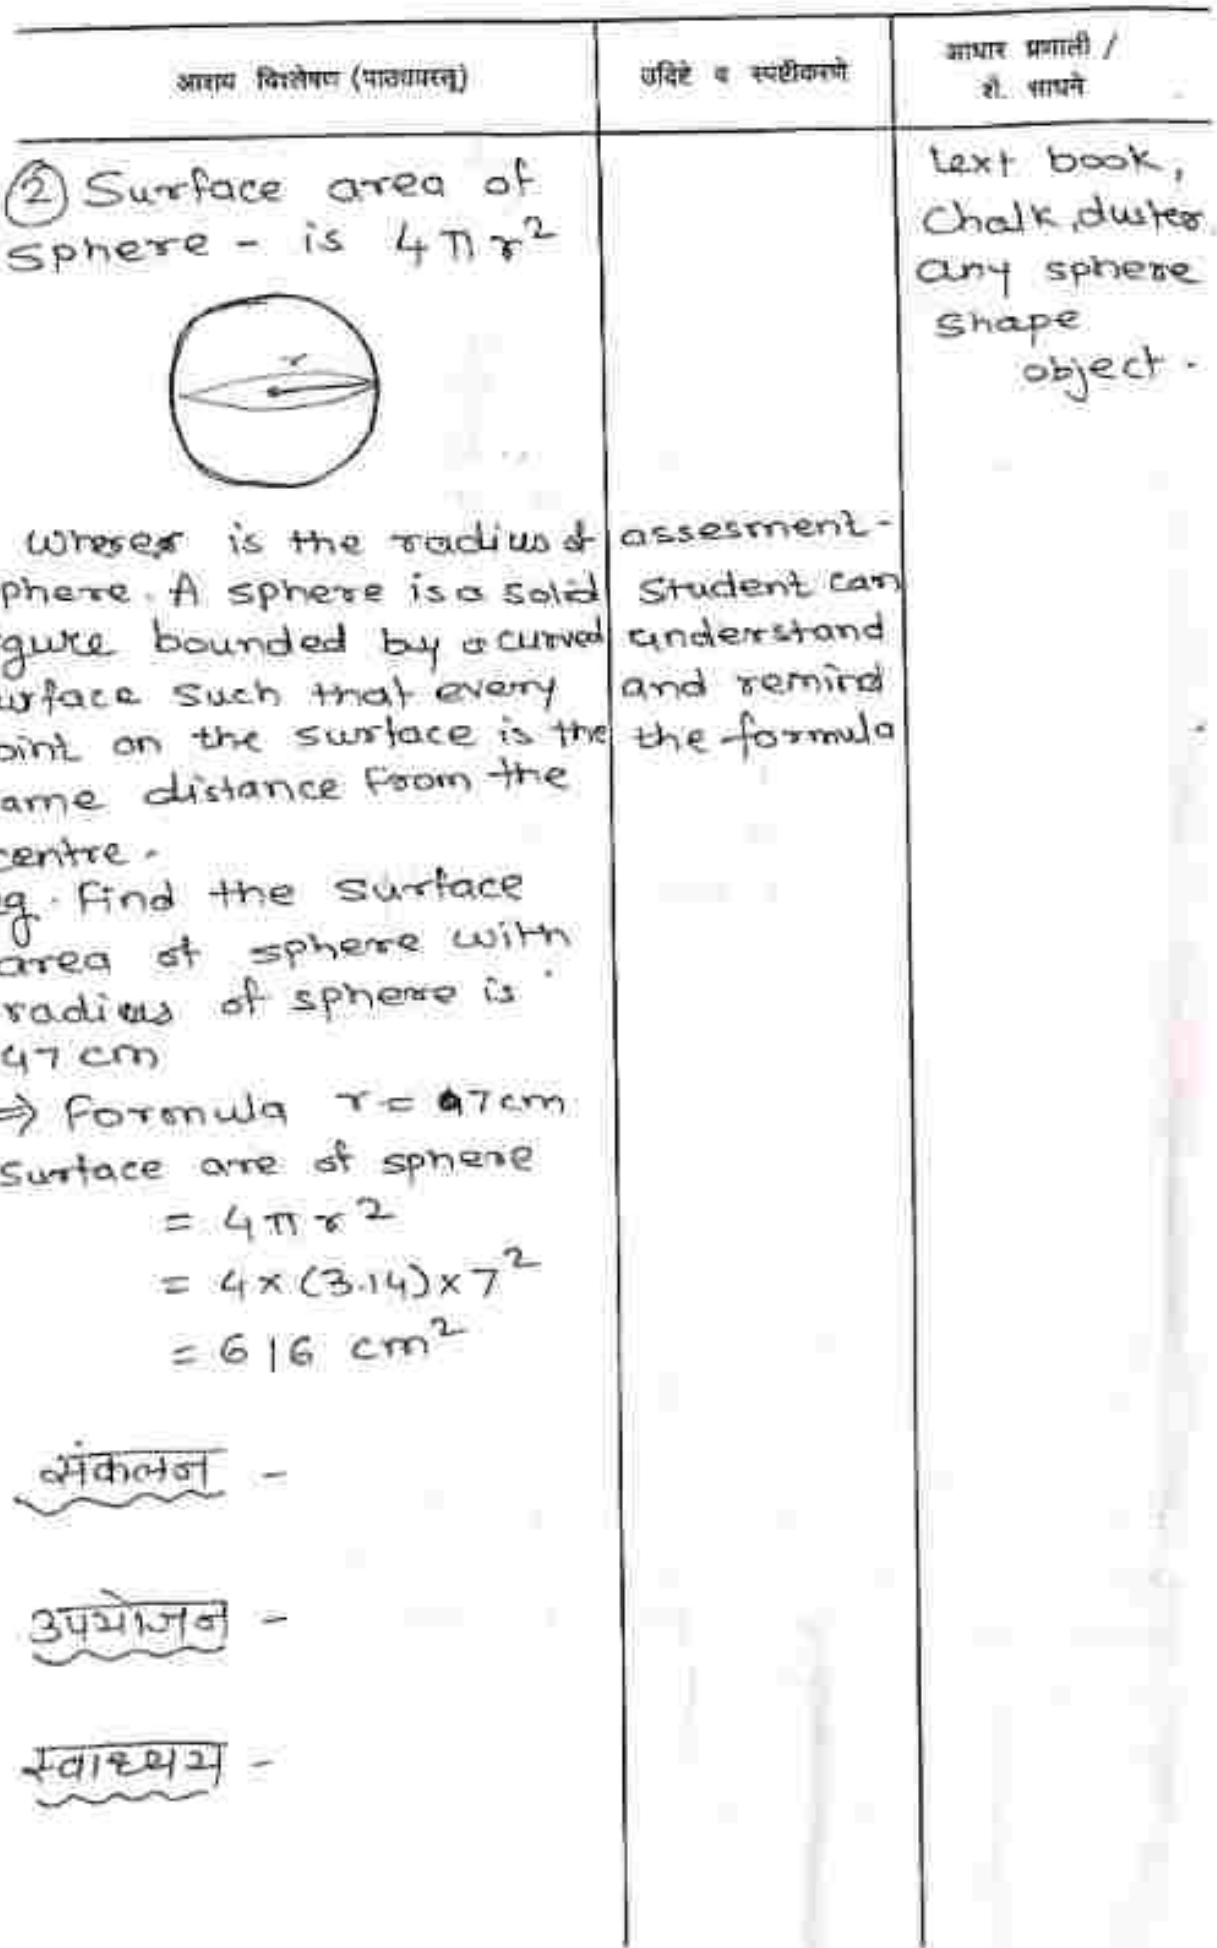 आशय विश्लेषण (पाठ्यवस्तू)
उदिष्टे व स्पष्टीकरणे
आधार प्रणाली /
शै. साधने
② Surface area of
sphere - is 4πr²
r
where r is the radius of
phere. A sphere is a solid
gure bounded by a curved
urface such that every
oint on the surface is the
ame distance from the
centre.
eg. Find the surface
area of sphere with
radius of sphere is
47 cm
⇒ Formula r = 7cm
Surface are of sphere
= 4πr²
= 4 × (3.14) × 7²
= 616 cm²
संकलन -
उपयोजन -
स्वाध्यय -
assesment -
Student can
understand
and remind
the formula
text book,
Chalk, duster,
any sphere
shape
object.